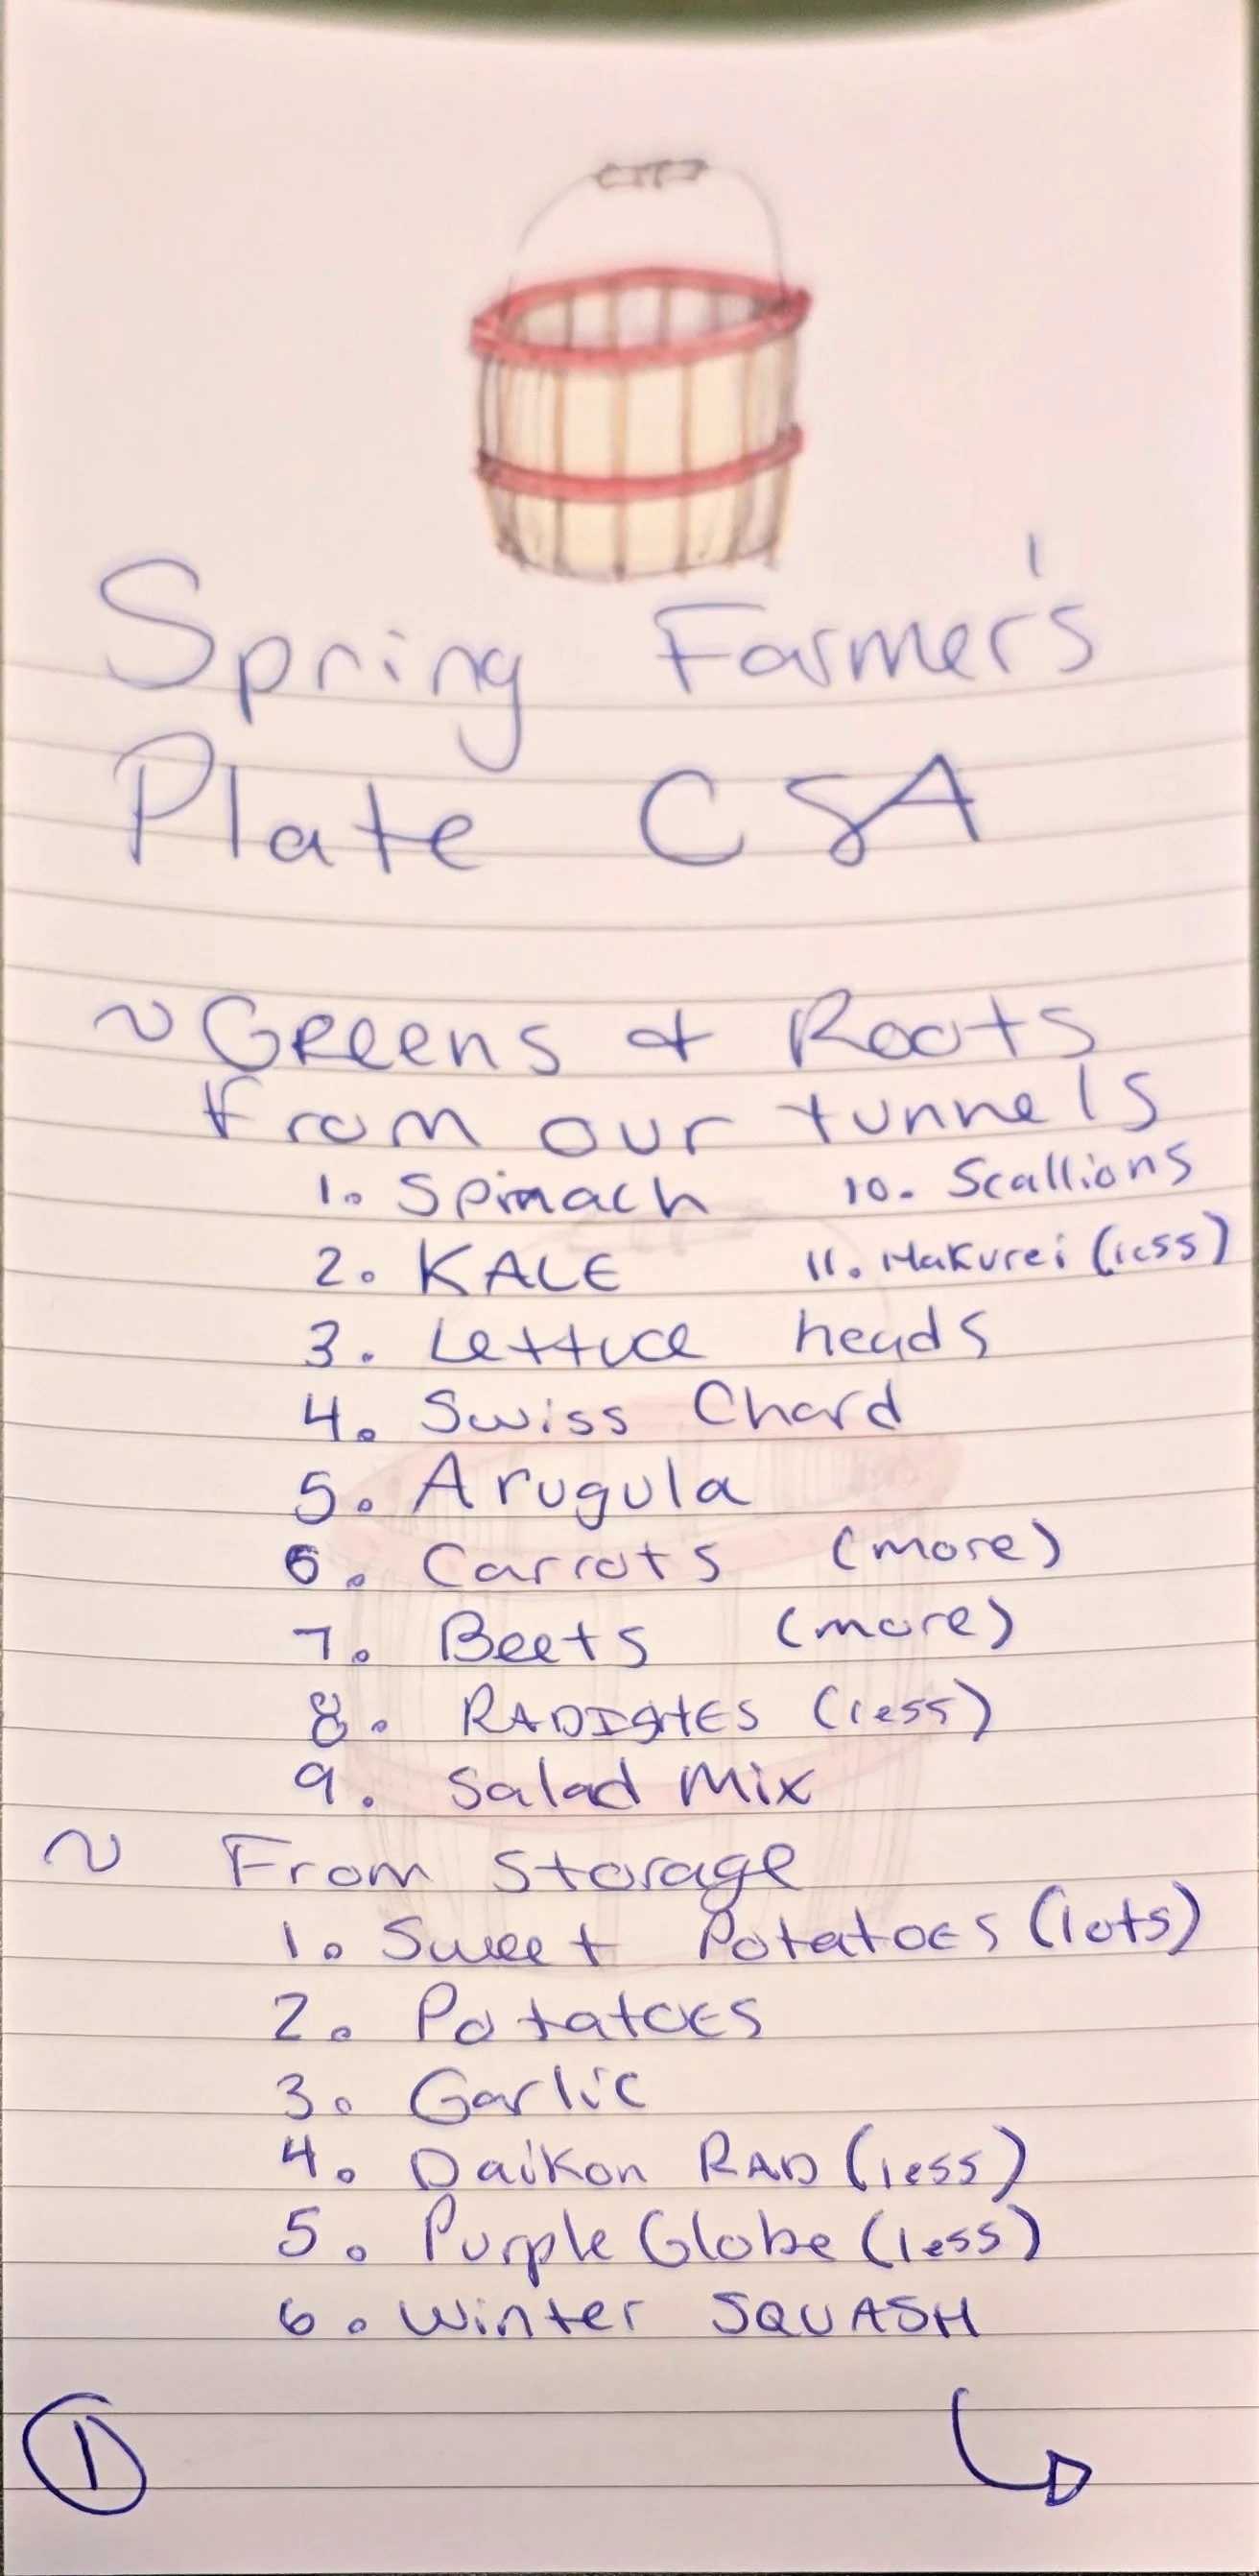 Spring Farmer's
Plate CSA
~ Greens & Roots
from our tunnels
1. Spinach 10. Scallions
2. KALE 11. Hakurei (less)
3. Lettuce heads
4. Swiss Chard
5. Arugula
6. Carrots (more)
7. Beets (more)
8. RADISHES (less)
9. Salad Mix
~ From Storage
1. Sweet Potatoes (lots)
2. Potatoes
3. Garlic
4. Daikon RAD (less)
5. Purple Globe (less)
6. Winter SQUASH
1